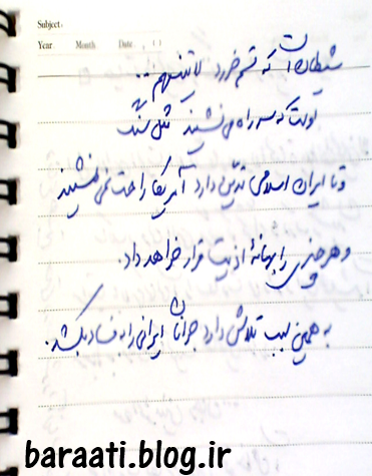 Subject:
Year Month Date
شیطان است که قسم خورد لاتینهم...
اوست که سر راه می نشیند مثل سگ
و تا ایران اسلامی تدین دارد آمریکا راحت نمی نشیند
و هر چیزی را بهانهٔ اذیت قرار خواهد داد.
به همین سبب تلاش دارد جوانان ایرانی را به فساد بکشد.
baraati.blog.ir